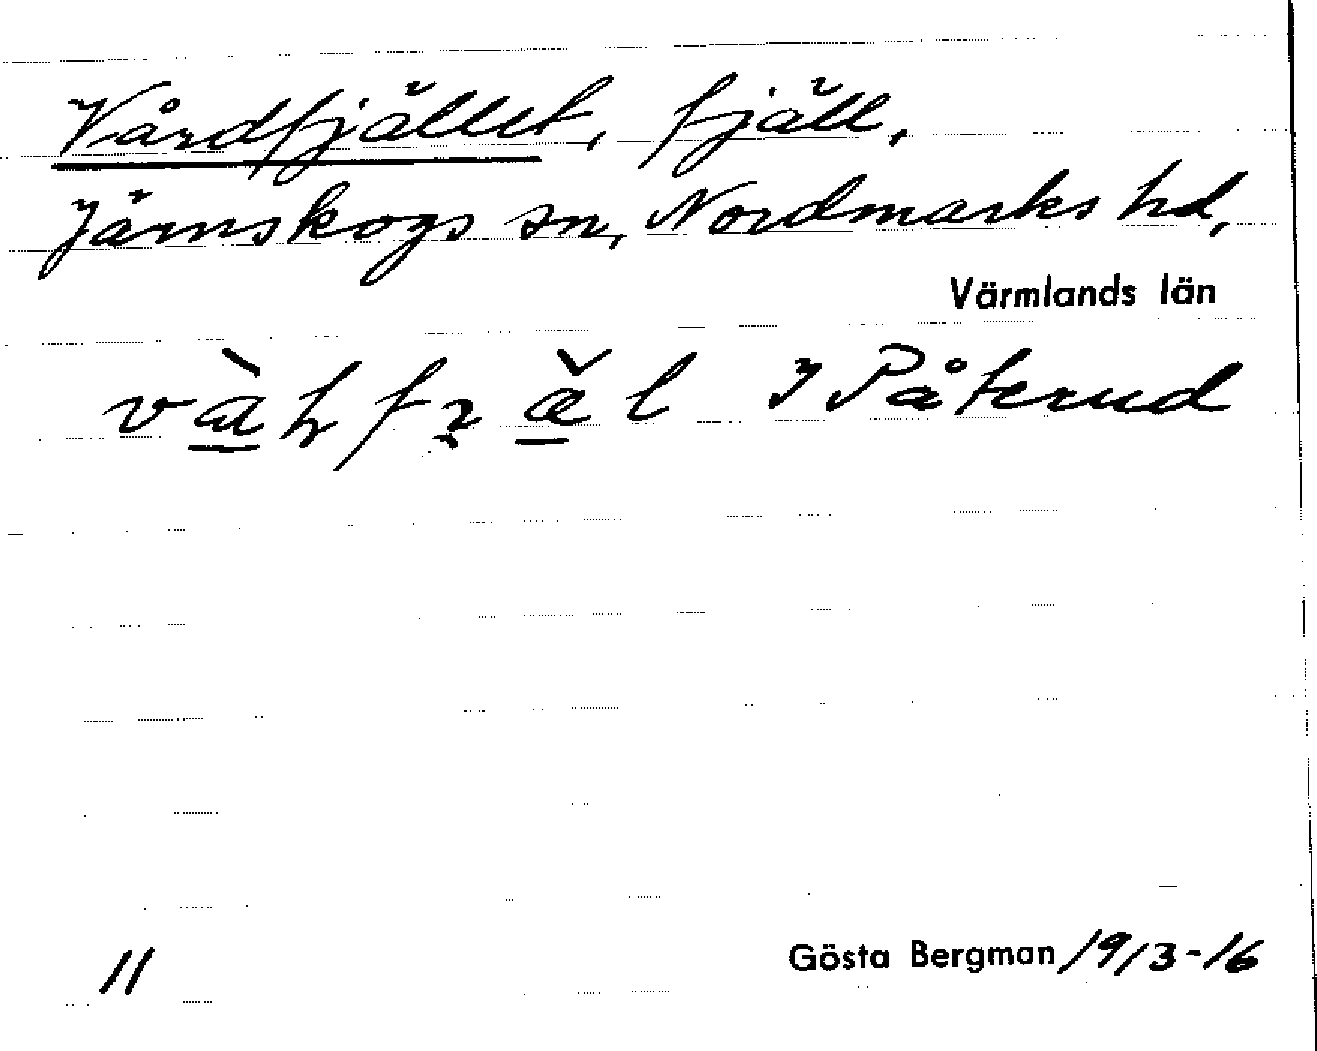 Vårdfjället, fjäll,
Järnskogs sn, Nordmarks hd,
Värmlands län
I Påterud
11
Gösta Bergman 1913-16